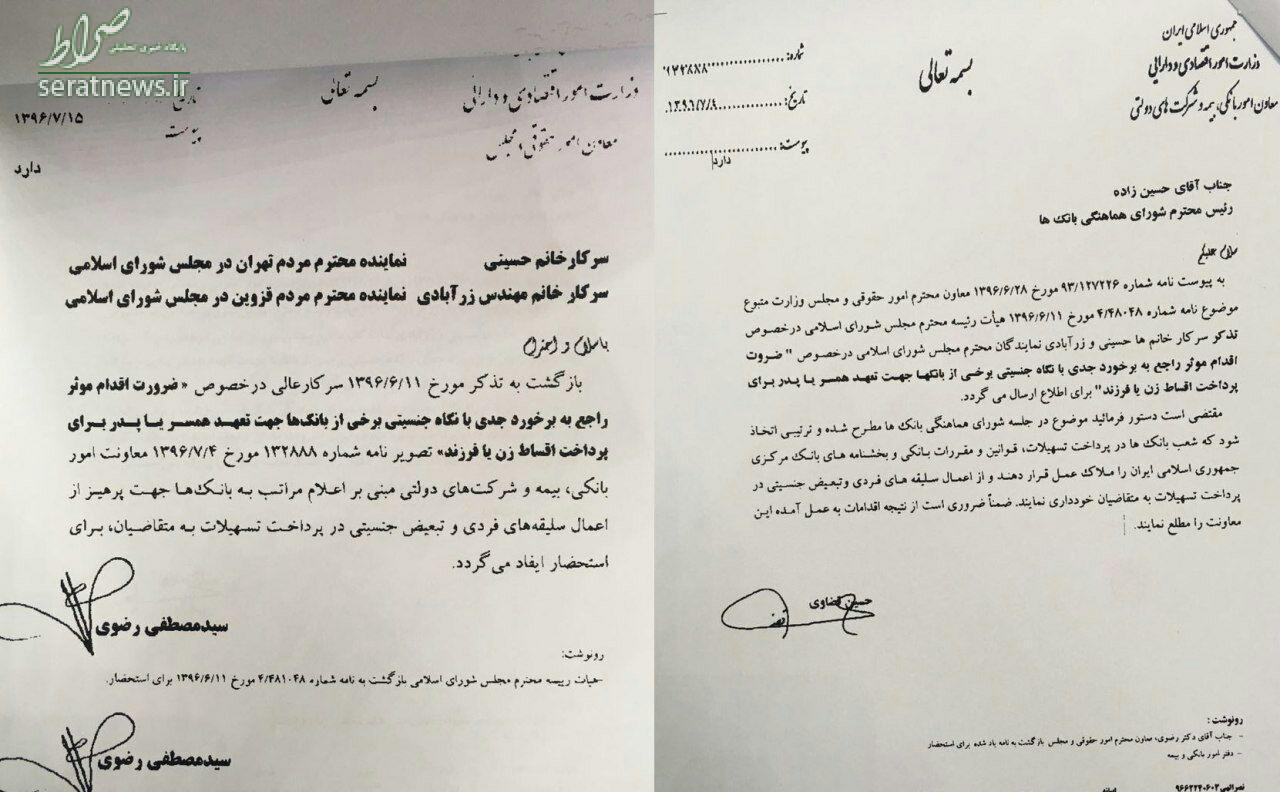 جمهوری اسلامی ایران
وزارت امور اقتصادی و دارائی
معاون امور بانکی، بیمه و شرکت های دولتی
بسمه تعالی
شماره:
تاریخ: ۱۳۹۶/۷/۹
پیوست:
دارد
جناب آقای حسین زاده
رئیس محترم شورای هماهنگی بانک ها
سلام علیکم
به پیوست نامه شماره ۹۳/۱۲۷۲۲۶ مورخ ۱۳۹۶/۶/۲۸ معاون محترم امور حقوقی و مجلس وزارت متبوع
موضوع نامه شماره ۴/۴۸۰۴۸ مورخ ۱۳۹۶/۶/۱۱ هیأت رئیسه محترم مجلس شورای اسلامی درخصوص
تذکر سرکار خانم ها حسینی و زرآبادی نمایندگان محترم مجلس شورای اسلامی درخصوص " ضروت
اقدام موثر راجع به برخورد جدی با نگاه جنسیتی برخی از بانکها جهت تعهد همسر یا پدر برای
پرداخت اقساط زن یا فرزند" برای اطلاع ارسال می گردد.
مقتضی است دستور فرمائید موضوع در جلسه شورای هماهنگی بانک ها مطرح شده و ترتیبی اتخاذ
شود که شعب بانک ها در پرداخت تسهیلات، قوانین و مقررات بانکی و بخشنامه های بانک مرکزی
جمهوری اسلامی ایران را ملاک عمل قرار دهند و از اعمال سلیقه های فردی وتبعیض جنسیتی در
پرداخت تسهیلات به متقاضیان خودداری نمایند. ضمناً ضروری است از نتیجه اقدامات به عمل آمده این
معاونت را مطلع نمایند.
حسین قضاوی
رونوشت :
- جناب آقای دکتر رضوی، معاون محترم امور حقوقی و مجلس بازگشت به نامه یاد شده برای استحضار
- دفتر امور بانکی و بیمه
صراط
پایگاه خبری تحلیلی
seratnews.ir
وزارت امور اقتصادی و دارائی
معاون امور حقوقی و مجلس
بسمه تعالی
تاریخ
۱۳۹۶/۷/۱۵
پیوست
دارد
سرکارخانم حسینی نماینده محترم مردم تهران در مجلس شورای اسلامی
سرکار خانم مهندس زرآبادی نماینده محترم مردم قزوین در مجلس شورای اسلامی
باسلام و احترام
بازگشت به تذکر مورخ ۱۳۹۶/۶/۱۱ سرکارعالی درخصوص «ضرورت اقدام موثر
راجع به برخورد جدی با نگاه جنسیتی برخی از بانک‌ها جهت تعهد همسر یا پدر برای
پرداخت اقساط زن یا فرزند» تصویر نامه شماره ۱۳۲۸۸۸ مورخ ۱۳۹۶/۷/۴ معاونت امور
بانکی، بیمه و شرکت‌های دولتی مبنی بر اعلام مراتب به بانک‌ها جهت پرهیز از
اعمال سلیقه‌های فردی و تبعیض جنسیتی در پرداخت تسهیلات به متقاضیان، برای
استحضار ایفاد می گردد.
سیدمصطفی رضوی
رونوشت:
-هیات رییسه محترم مجلس شورای اسلامی بازگشت به نامه شماره ۴/۴۸۱۰۴۸ مورخ ۱۳۹۶/۶/۱۱ برای استحضار.
سیدمصطفی رضوی